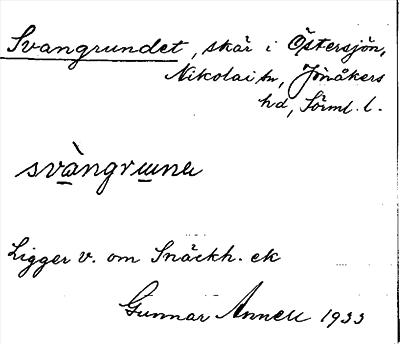 Svangrundet, skär i Östersjön,
Nikolai sn, Jönåkers
hd, Sörml. l.
svàngrunα
Ligger v. om Snäckh. ek
Gunnar Annell 1933